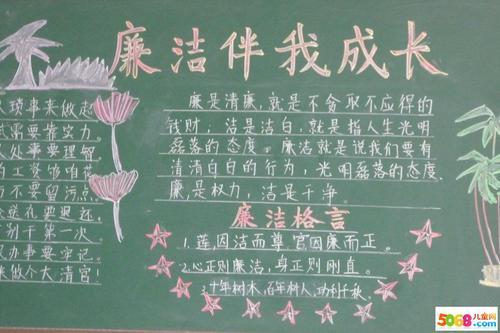 廉洁伴我成长
琐事来做起
试需要靠实力。
处事要理智
工资够咱
不要留污点
礼要退还,
别于第一次。
办事要牢记。
来做个大清官!
廉是清廉,就是不贪取不应得的
钱财;洁是洁白,就是指人生光明
磊落的态度。廉洁就是说我们要有
清清白白的行为,光明磊落的态度.
廉,是权力,洁是干净.
廉洁格言
1.莲因洁而尊,官因廉而正。
2.心正则廉洁,身正则刚直。
3.十年树木,百年树人,功利千秋。
5068儿童网
www.5068.com